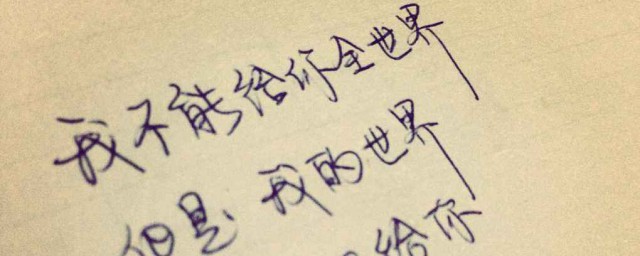 我不能给你全世界
但是 我的世界
给你